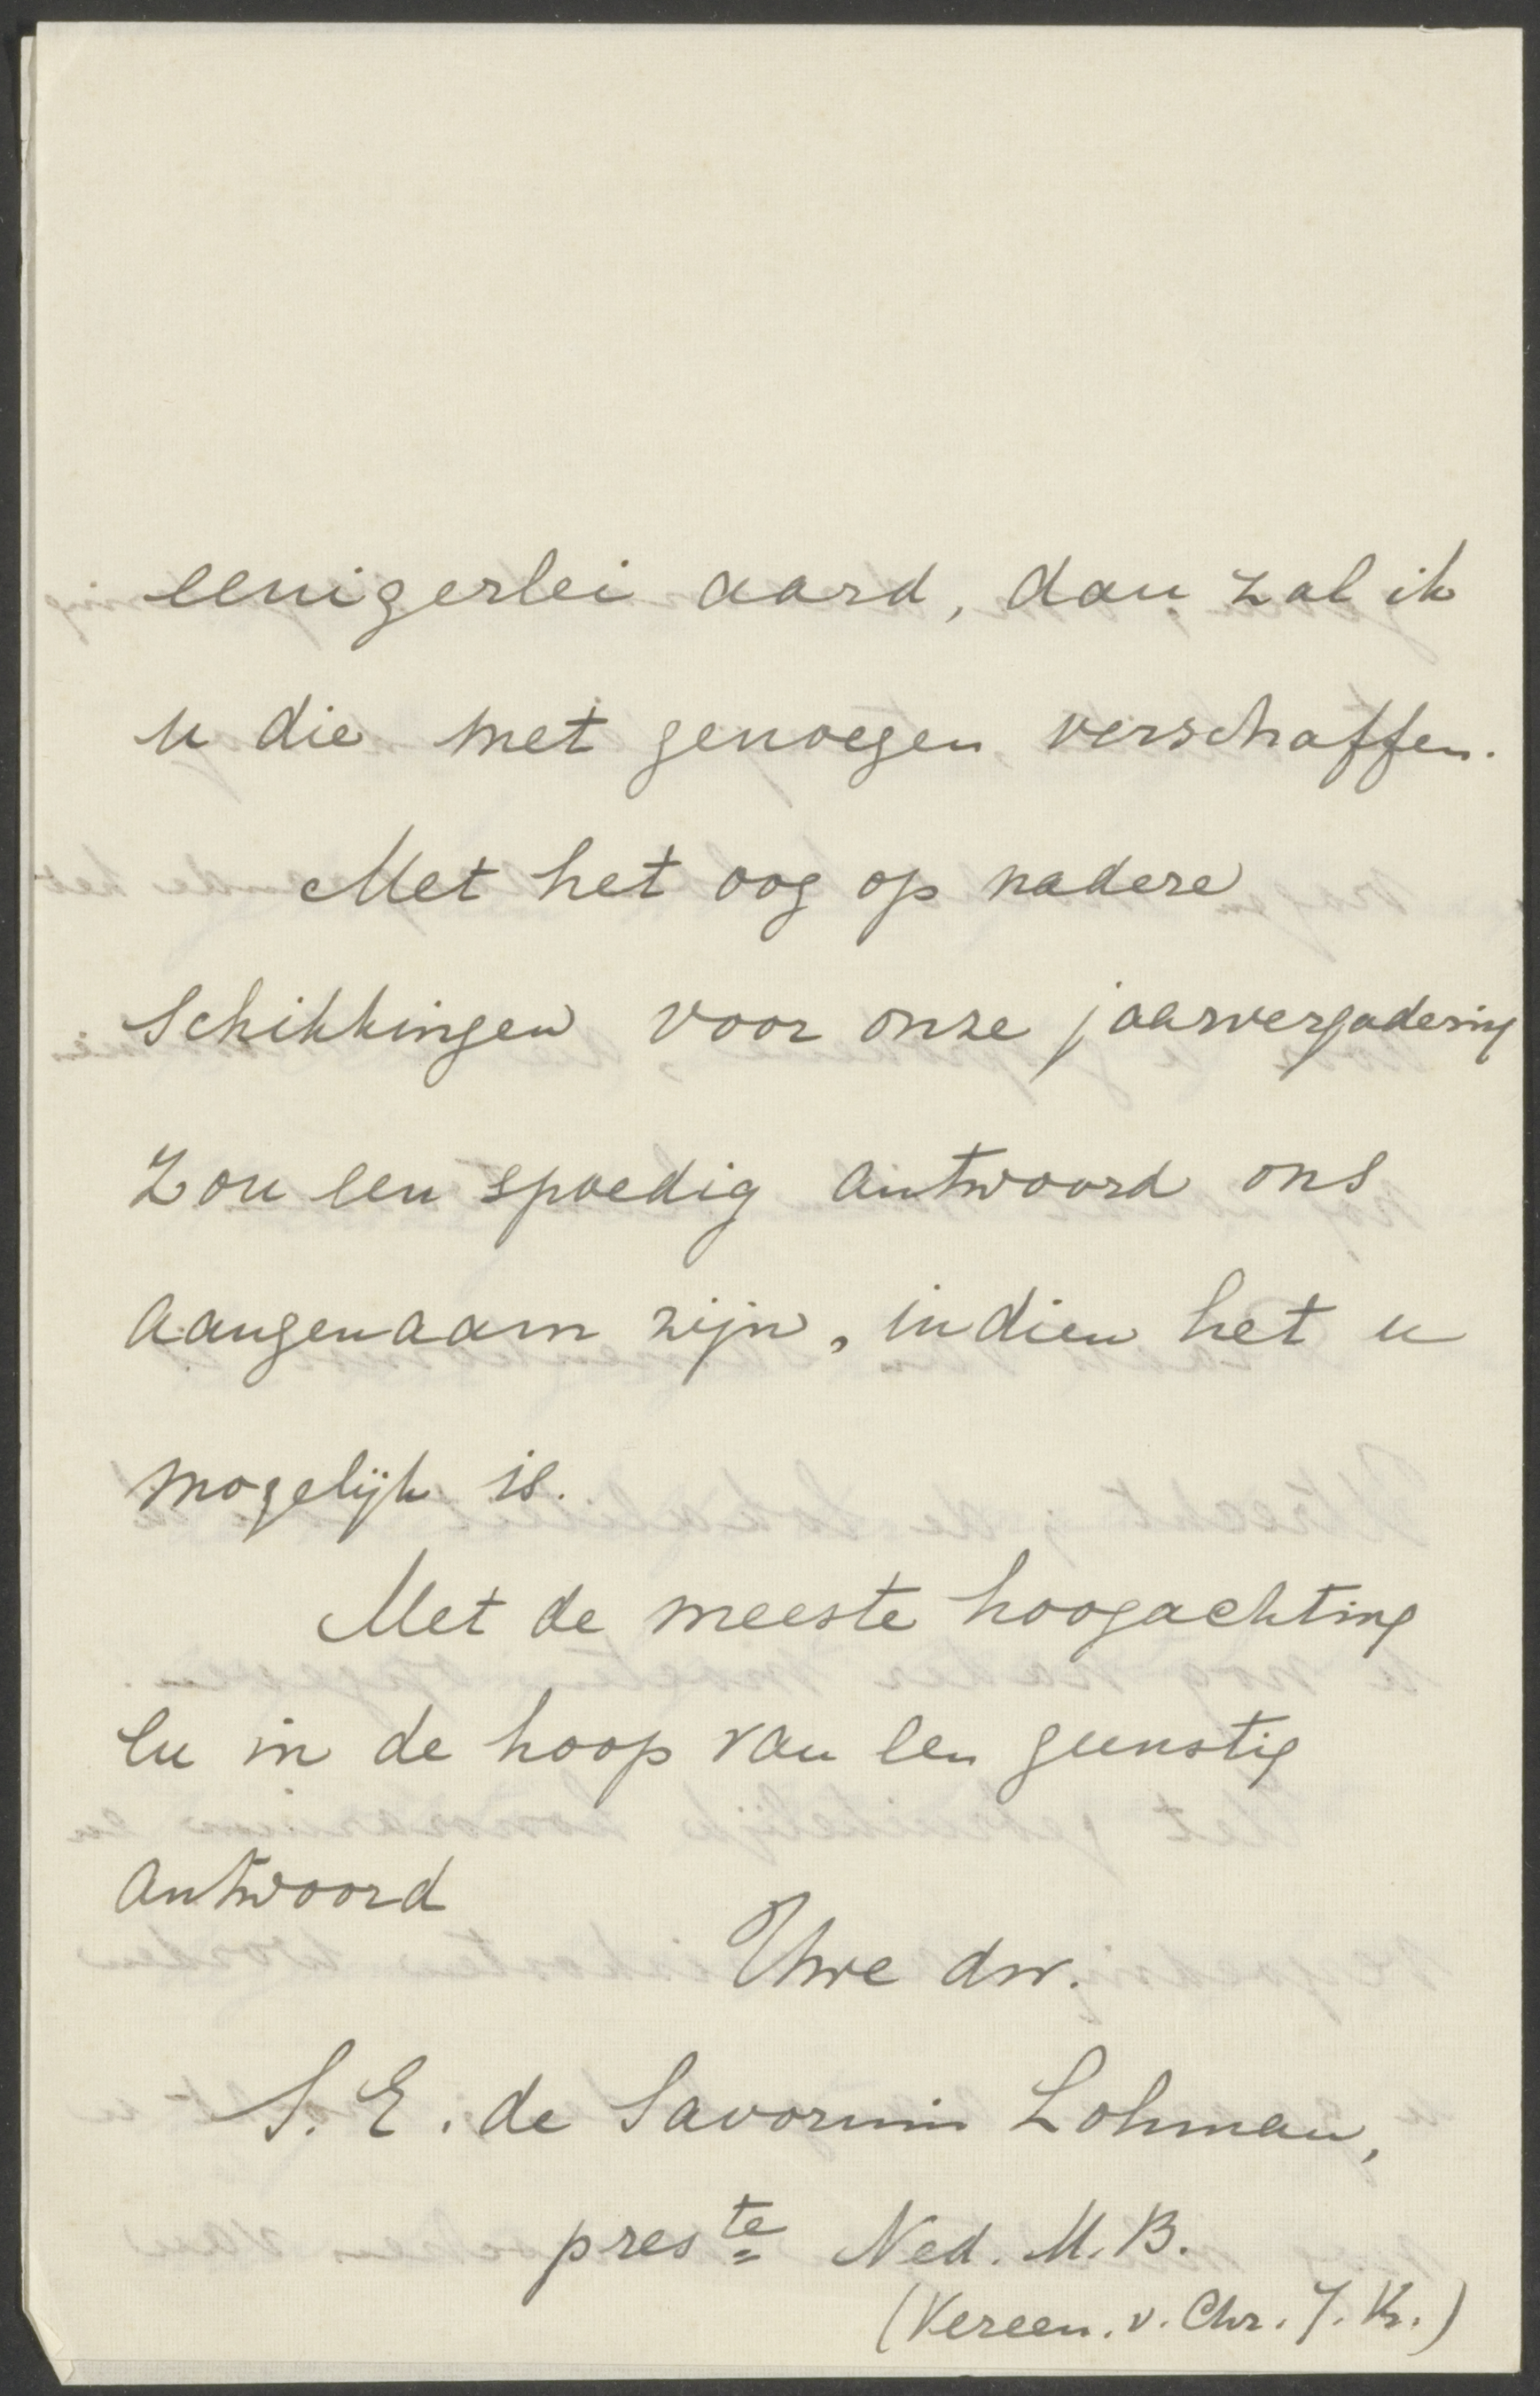 eenigerlei aard, dan zal ik
u die met genoegen verschaffen.
Met het oog op nadere
schikkingen voor onze jaarvergadering
zou een spoedig antwoord ons
aangenaam zijn, indien het u
mogelijk is.
Met de meeste hoogachting
en in de hoop van een gunstig
antwoord
Uwe dw.
S. E. de Savornin Lohman,
pres te Ned. M. B.
(Vereen. v. Chr. J. Vr.)